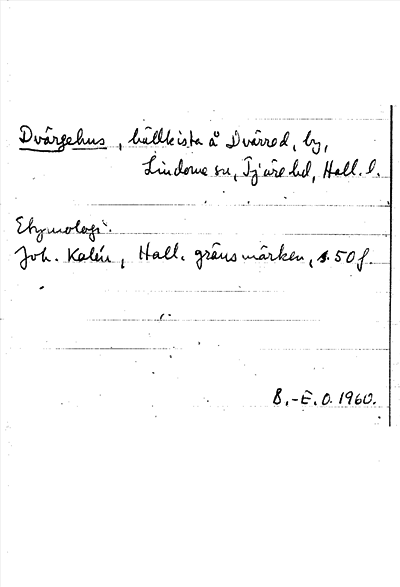 Dvärgehus, hällkista å Dvärred, by,
Lindome sn, Fjäre hd, Hall. l.
Etymologi:
Joh. Kalén, Hall. gränsmärken, s. 50 f.
B.-E. O. 1960.